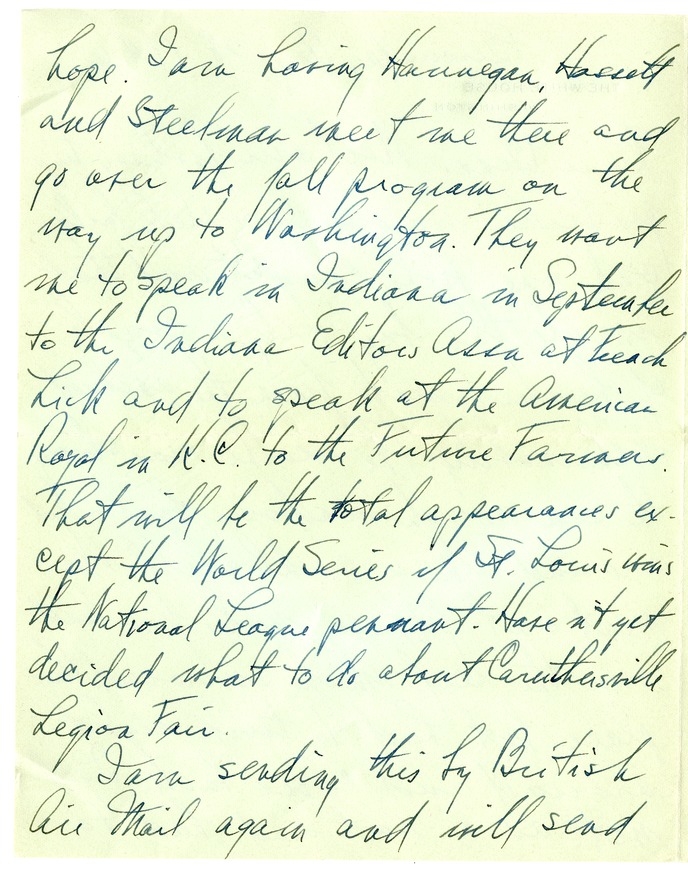 hope. I am having Hannegan, Hassett
and Steelman meet me there and
go over the fall program on the
way up to Washington. They want
me to speak in Indiana in September
to the Indiana Editors Assn at French
Lick and to speak at the American
Royal in K.C. to the Future Farmers.
That will be the total appearances ex-
cept the World Series if St. Louis wins
the National League pennant. Have n't yet
decided what to do about Caruthersville
Legion Fair.
I am sending this by British
Air Mail again and will send